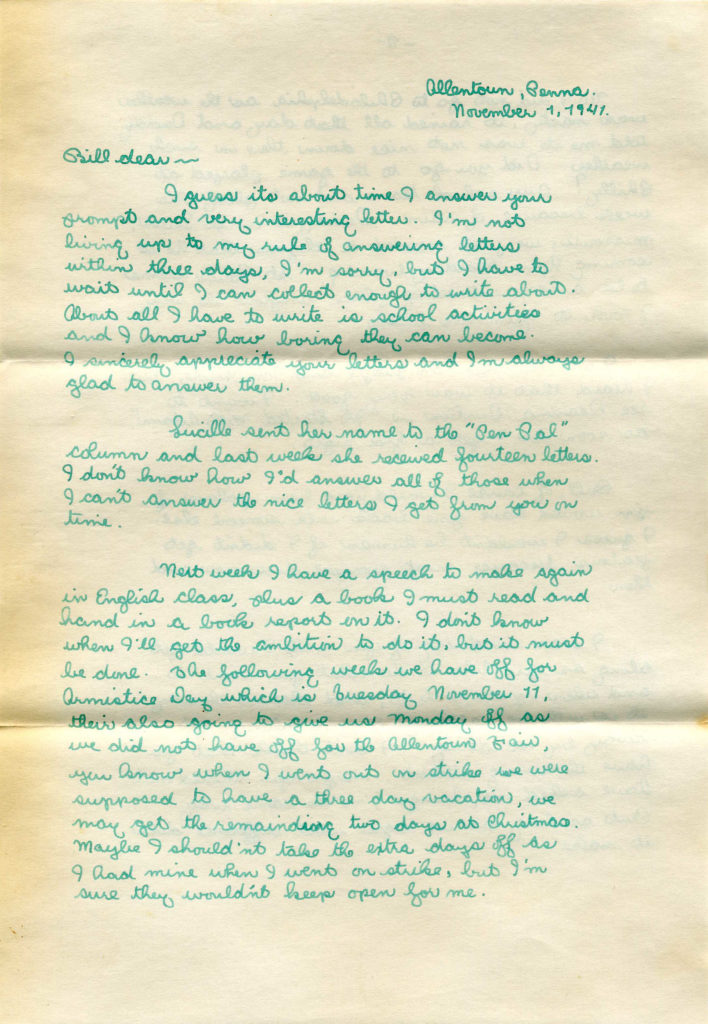 Allentown, Penna.
November 1, 1941.
Bill dear ~
I guess its about time I answer your
prompt and very interesting letter. I'm not
living up to my rule of answering letters
within three days, I'm sorry, but I have to
wait until I can collect enough to write about.
About all I have to write is school activities
and I know how boring they can become.
I sincerely appreciate your letters and I'm always
glad to answer them.
Lucille sent her name to the "Pen Pal"
column and last week she received fourteen letters.
I don't know how I'd answer all of those when
I can't answer the nice letters I get from you on
time.
Next week I have a speech to make again
in English class, plus a book I must read and
hand in a book report on it. I don't know
when I'll get the ambition to do it, but it must
be done. The following week we have off for
Armistice Day which is Tuesday November 11,
their also going to give us Monday off as
we did not have off for the Allentown Fair,
you know when I went out on strike we were
supposed to have a three day vacation, we
may get the remainding two days at Christmas.
Maybe I should'nt take the extra days off as
I had mine when I went on strike, but I'm
sure they wouldn't keep open for me.